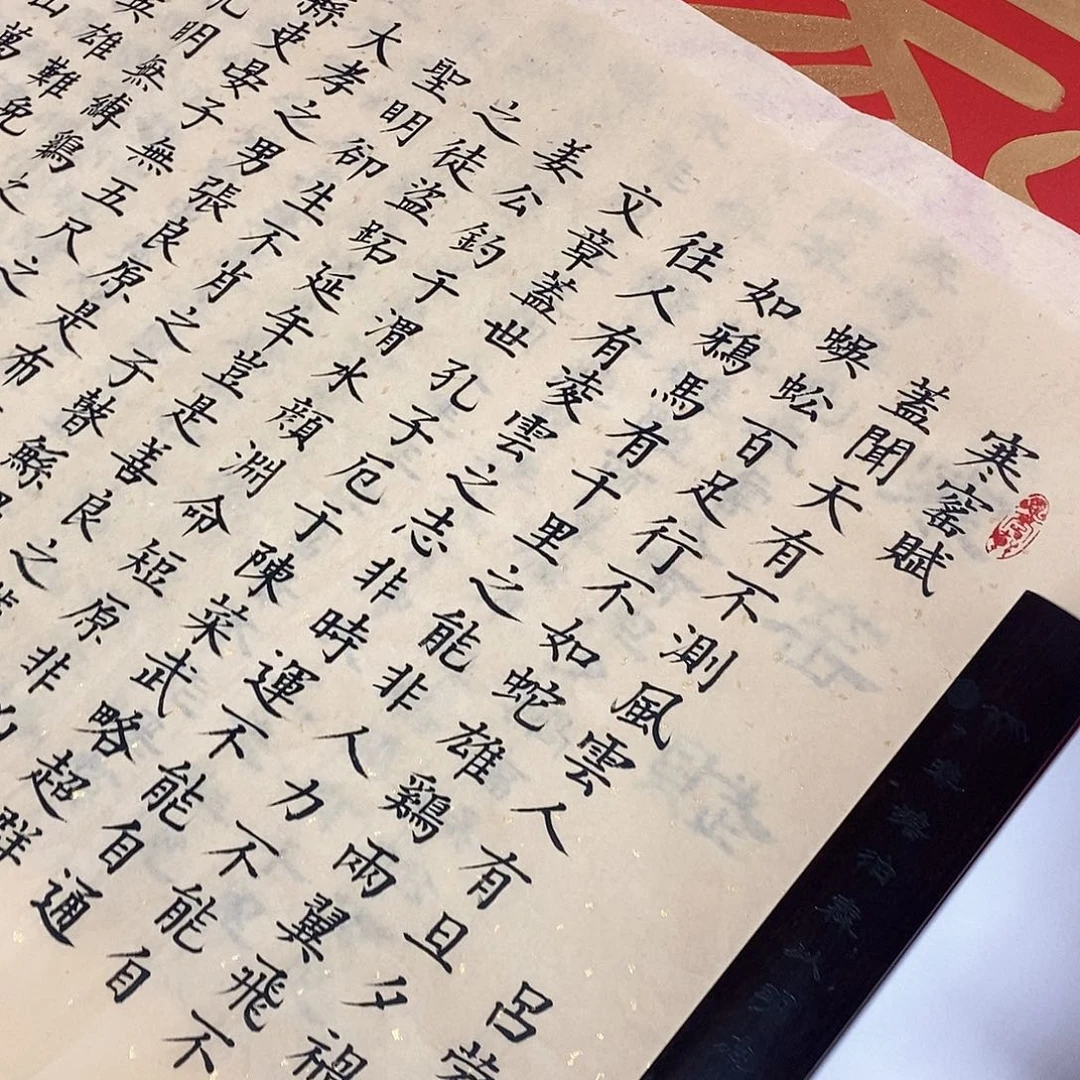 寒窑賦 呂蒙
蓋聞天有不測風雲人有旦夕禍
蜈蚣百足行不如蛇雄鷄兩翼飛不
如鴉馬有千里之能非人力不能自
往人有凌雲之志非時運不能自通
文章蓋世孔子厄于陳菜武略超群
姜公釣于渭水顔淵命短原非
之徒盜跖延年豈是善良之
聖明卻生不肖之子瞽鯀
大孝之男張良原是布
縣吏晏子無五尺之
孔明無縛鷄之
英雄難免
山萬